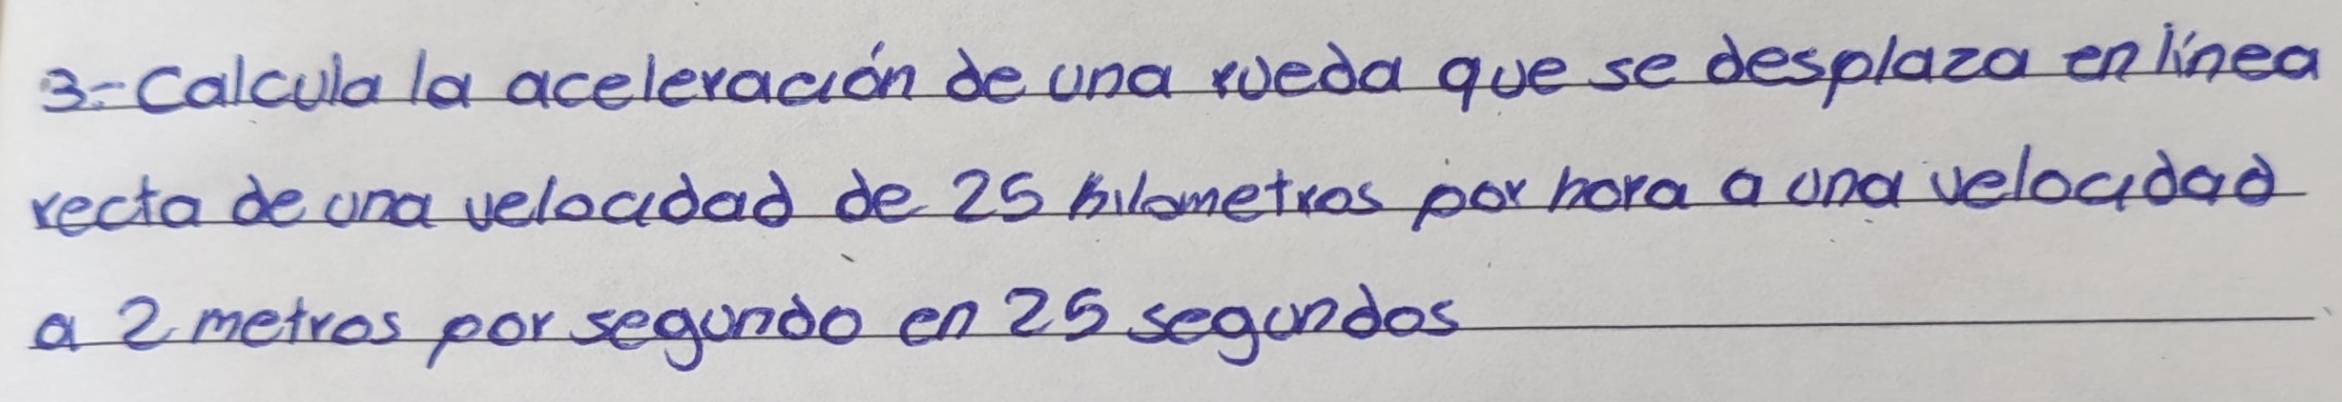 3.- Calcula la aceleración de una rueda que se desplaza en línea
recta de una velocidad de 25 kilometros por hora a una velocidad
a 2 metros por segundo en 25 segundos